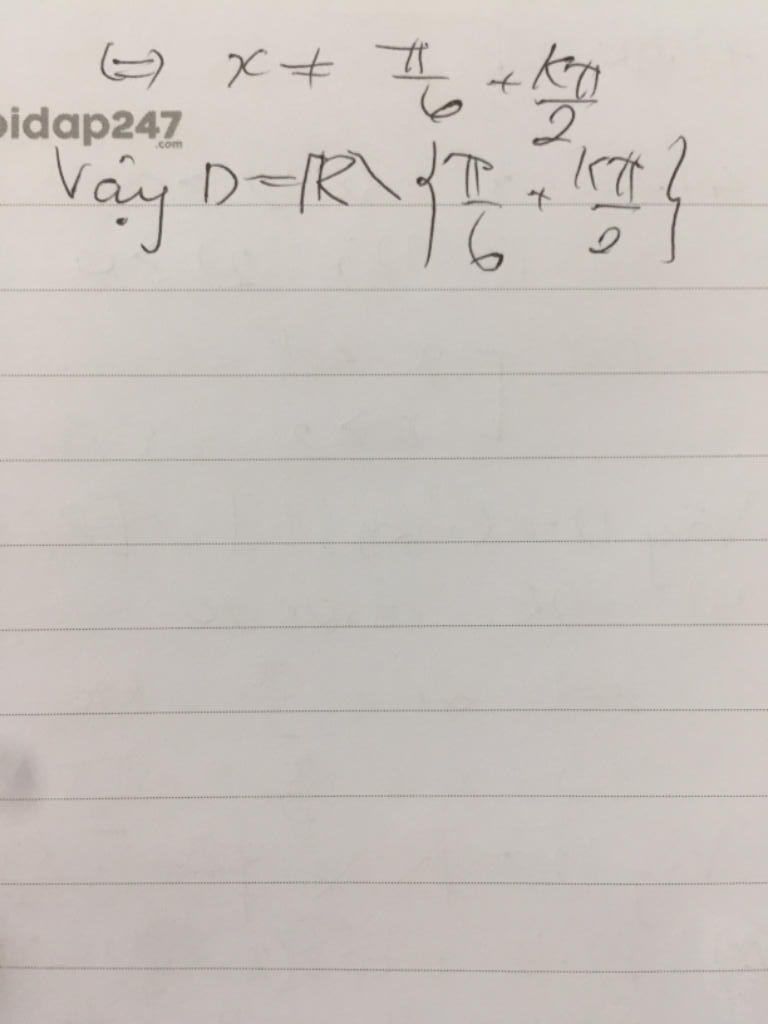 ⇔ x ≠ π/6 + kπ/2
oidap247
.com
Vậy D = ℝ \ {π/6 + kπ/2}